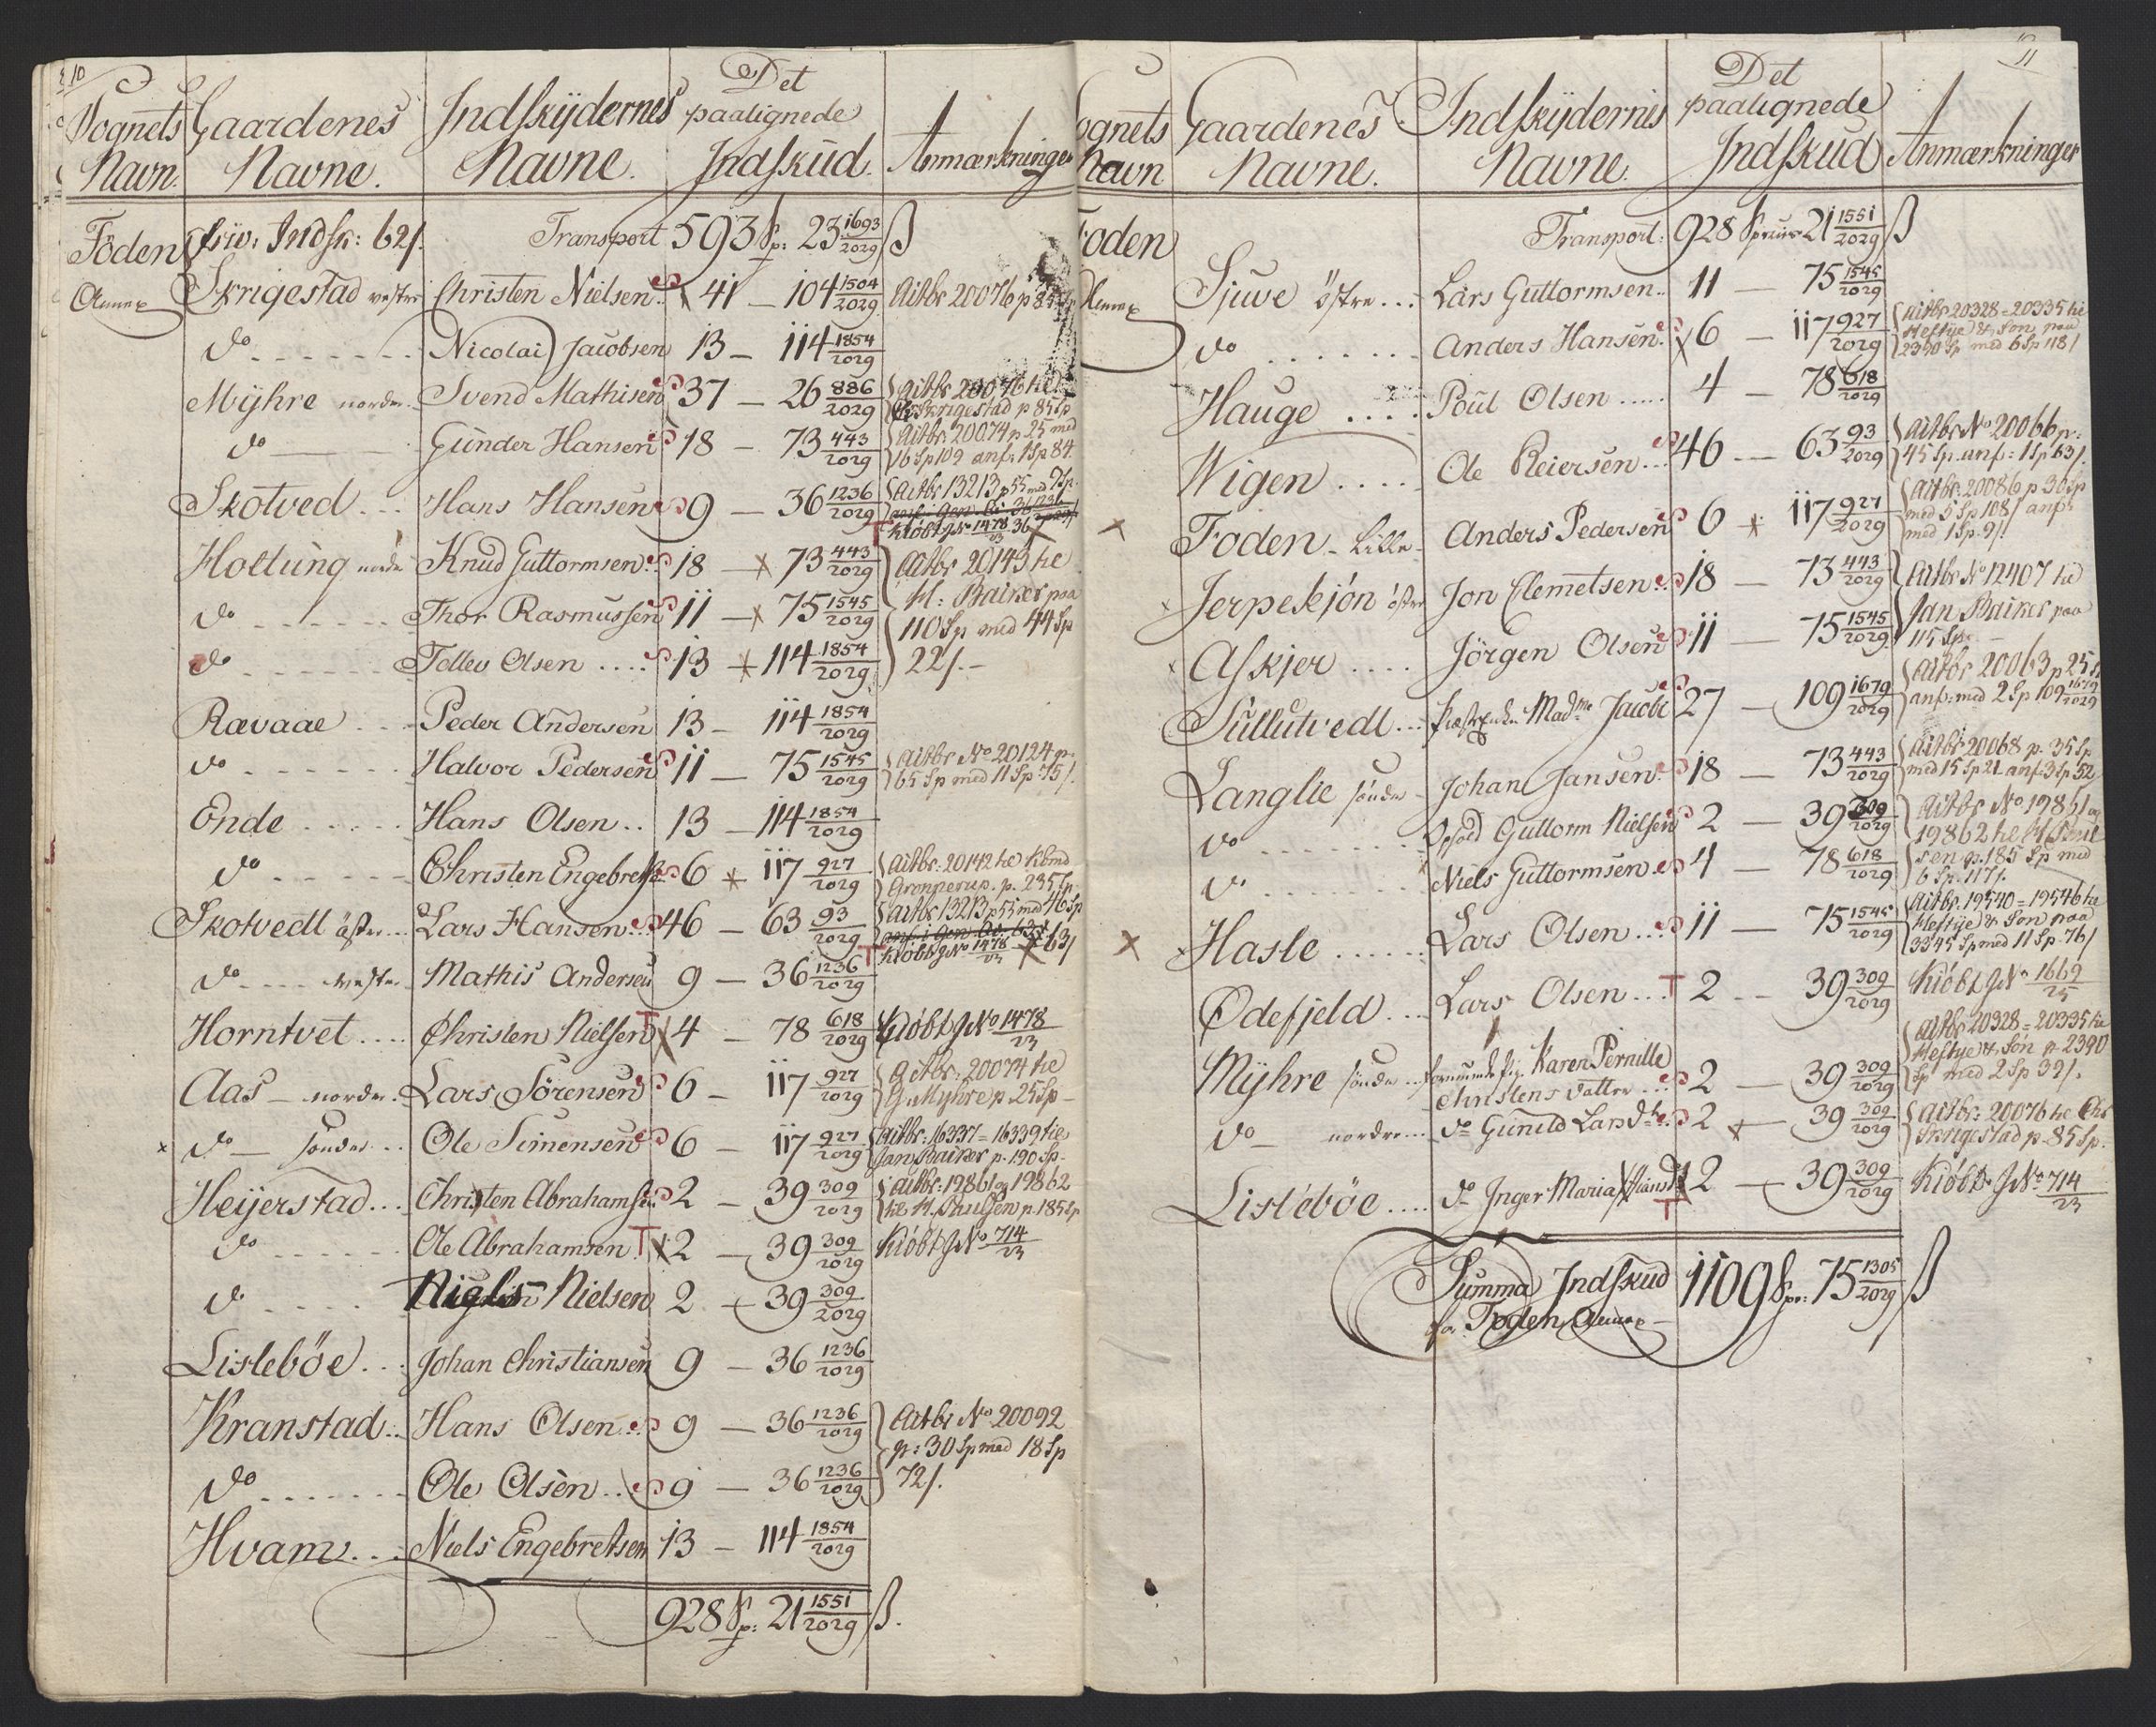 10
Sognets Navn. | Gaardenes Navne. | Indskydernes Navne. | Det paalignede Indskud. | Anmærkninger
Foden Annex | Indsk: 62/. | Transport | 593 Sp: 23 1693/2029 ß
Skrigestad vestre | Christen Nielsen | 41 — 104 1504/2029 | Actbr 20076 p 85
do | Nicolai Jacobsen | 13 — 114 1854/2029
Myhre nordre | Svend Mathisen | 37 — 26 886/2029 | Actbr 20076 he Skrigestad p 85 Sp
do | Gunder Hansen | 18 — 73 443/2029 | Actbr 20074 p 25 med 16 Sp 109 anf: 1 Sp 84
Skotved | Hans Hansen | 9 — 36 1236/2029 | Actbr 13213 p 55 med 9 Sp. Kiøbt JNo 1478/23 36
Holtung nordre | Knud Guttormsen | 18 — 73 443/2029 | Actbr 20143 he
do | Thor Rasmussen | 11 — 75 1545/2029 | H: Baiker paa 110 Sp med 44 Sp
do | Tollev Olsen | 13 — 114 1854/2029 | 22/.
Rævaae | Peder Andersen | 13 — 114 1854/2029
do | Halvor Pedersen | 11 — 75 1545/2029 | Actbr No 20124 p. 65 Sp med 11 Sp 75/.
Ende | Hans Olsen | 13 — 114 1854/2029
do | Christen Engebretsen | 6 — 117 927/2029 | Actbr: 20142 he Kbmd Gronnerup. p. 235 Sp.
Skotvedt östre | Lars Hansen | 46 — 63 93/2029 | Actbr 13213 p 55 med 46 Sp Kiøbt JNo 1478/23 63/
do vestre | Mathis Andersen | 9 — 36 1236/2029
Horntvet | Christen Nielsen | 4 — 78 618/2029 | Kiøbt JNo 1478/23
Aas nordre | Lars Sörensen | 6 — 117 927/2029 | Actbr: 20074 he G. Myhre p. 25 Sp
do söndre | Ole Simensen | 6 — 117 927/2029 | Actbr: 16337 = 16339 he Jan Baiker p. 190 Sp
Heyerstad | Christen Abrahamsen | 2 — 39 309/2029 | Actbr: 19861 og 19862 he H. Poulsen p. 185 Sp
do | Ole Abrahamsen | 2 — 39 309/2029 | Kiøbt JNo 714/23
do | Niels Nielsen | 2 — 39 309/2029
Lisleböe | Johan Christiansen | 9 — 36 1236/2029
Kranstad | Hans Olsen | 9 — 36 1236/2029 | Actbr No 20092 p: 30 Sp med 18 Sp
do | Ole Olsen | 9 — 36 1236/2029 | 72/.
Hvam | Niels Engebretsen | 13 — 114 1854/2029
928 Sp: 21 1551/2029 ß.
11
Sognets Navn | Gaardenes Navne. | Indskydernes Navne. | Det paalignede Indskud | Anmærkninger
Foden Annex | Transport: | 928 Specier 21 1551/2029 ß
Sjuve östre | Lars Guttormsen | 11 — 75 1545/2029
do | Anders Hansen | 6 — 117 927/2029 | Actbr 20328 = 20335 he Heftye & Søn paa 2390 Sp med 6 Sp 118/
Hauge | Poul Olsen | 4 — 78 618/2029
Wigen | Ole Reiersen | 46 — 63 93/2029 | Actbr No 20066 p: 45 Sp. anf: 1 Sp 63/.
Foden Lille | Anders Pedersen | 6 — 117 927/2029 | Actbr: 20086 p 30 Sp med 5 Sp 108/ anf: med 1 Sp. 9/.
Jerpekjön östre | Jon Clemetsen | 18 — 73 443/2029 | Actbr No 12407 he
Askjer | Jörgen Olsen | 11 — 75 1545/2029 | Jan Baiker paa 115 Sp.
Sullutvedt | Madme Jacobi | 27 — 109 1679/2029 | Actbr 20063 p 25 anf: med 2 Sp 109 1679/2029
Langlie söndre | Johan Jansen | 18 — 73 443/2029 | Actbr 20068 p. 35 Sp med 15 Sp 21 anf: 3 Sp 52
do | Guttorm Nielsen | 2 — 39 309/2029 | Actbr No 19861 og 19862 he H Poul
do | Niels Guttormsen | 4 — 78 618/2029 | sen p. 185 Sp med 6 Sp. 117/.
Hasle | Lars Olsen | 11 — 75 1545/2029 | Actbr: 19540 = 19546 he Heftye & Søn paa 3345 Sp med 11 Sp 76/
Ödefjeld | Lars Olsen | 2 — 39 309/2029 | Kiøbt JNo 1669/25
Myhre söndre | Karen Pernille Christens datter | 2 — 39 309/2029 | Actbr 20328 = 20335 he Heftye & Søn p 2390 Sp med 2 Sp 39/.
do nordre | do Gunild Larsdtr | 2 — 39 309/2029 | Actbr: 20076 he Chr Skrigestad p 85 Sp.
Lisleböe | do Inger Maria | 2 — 39 309/2029 | Kiøbt JNo 714/23
Summa Indskud for Foden Annex | 1109 Sp: 75 1305/2029 ß